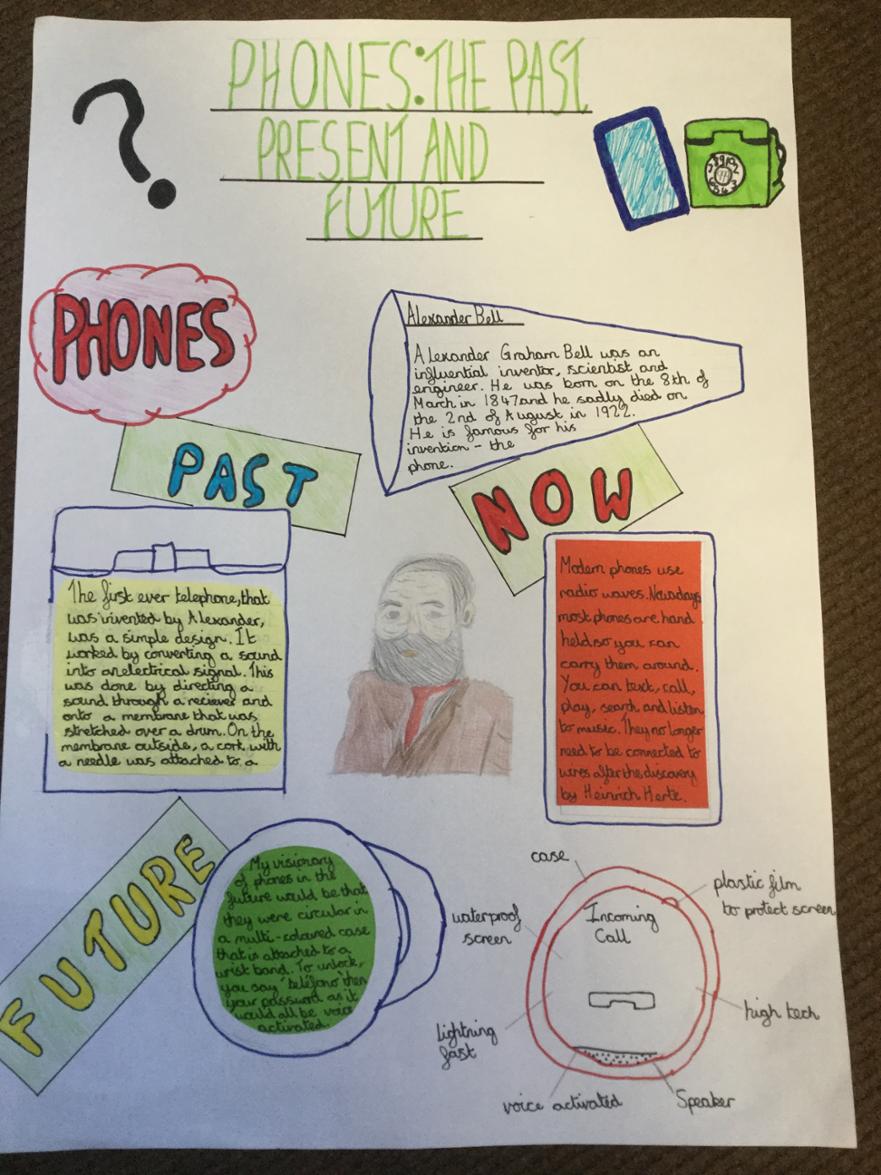 PHONES: THE PAST
PRESENT AND
FUTURE
PHONES
Alexander Bell
Alexander Graham Bell was an
influential inventor, scientist and
engineer. He was born on the 8th of
March in 1847 and he sadly died on
the 2nd of August in 1922.
He is famous for his
invention - the
phone.
PAST
NOW
The first ever telephone, that
was invented by Alexander,
was a simple design. It
worked by converting a sound
into an electrical signal. This
was done by directing a
sound through a reciever and
onto a membrane that was
stretched over a drum. On the
membrane outside, a cork with
a needle was attached to a
Modern phones use
radio waves. Nowadays
most phones are hand
held so you can
carry them around.
You can text, call,
play, search and listen
to music. They no longer
need to be connected to
wires after the discovery
by Heinrich Hertz.
FUTURE
My visionary
of phones in the
future would be that
they were circular in
a multi-coloured case
that is attached to a
wrist band. To unlock,
you say 'teléfono' then
your password as it
would all be voice
activated.
case
plastic film
to protect screen
waterproof
screen
Incoming
Call
high tech
lightning
fast
voice activated
Speaker